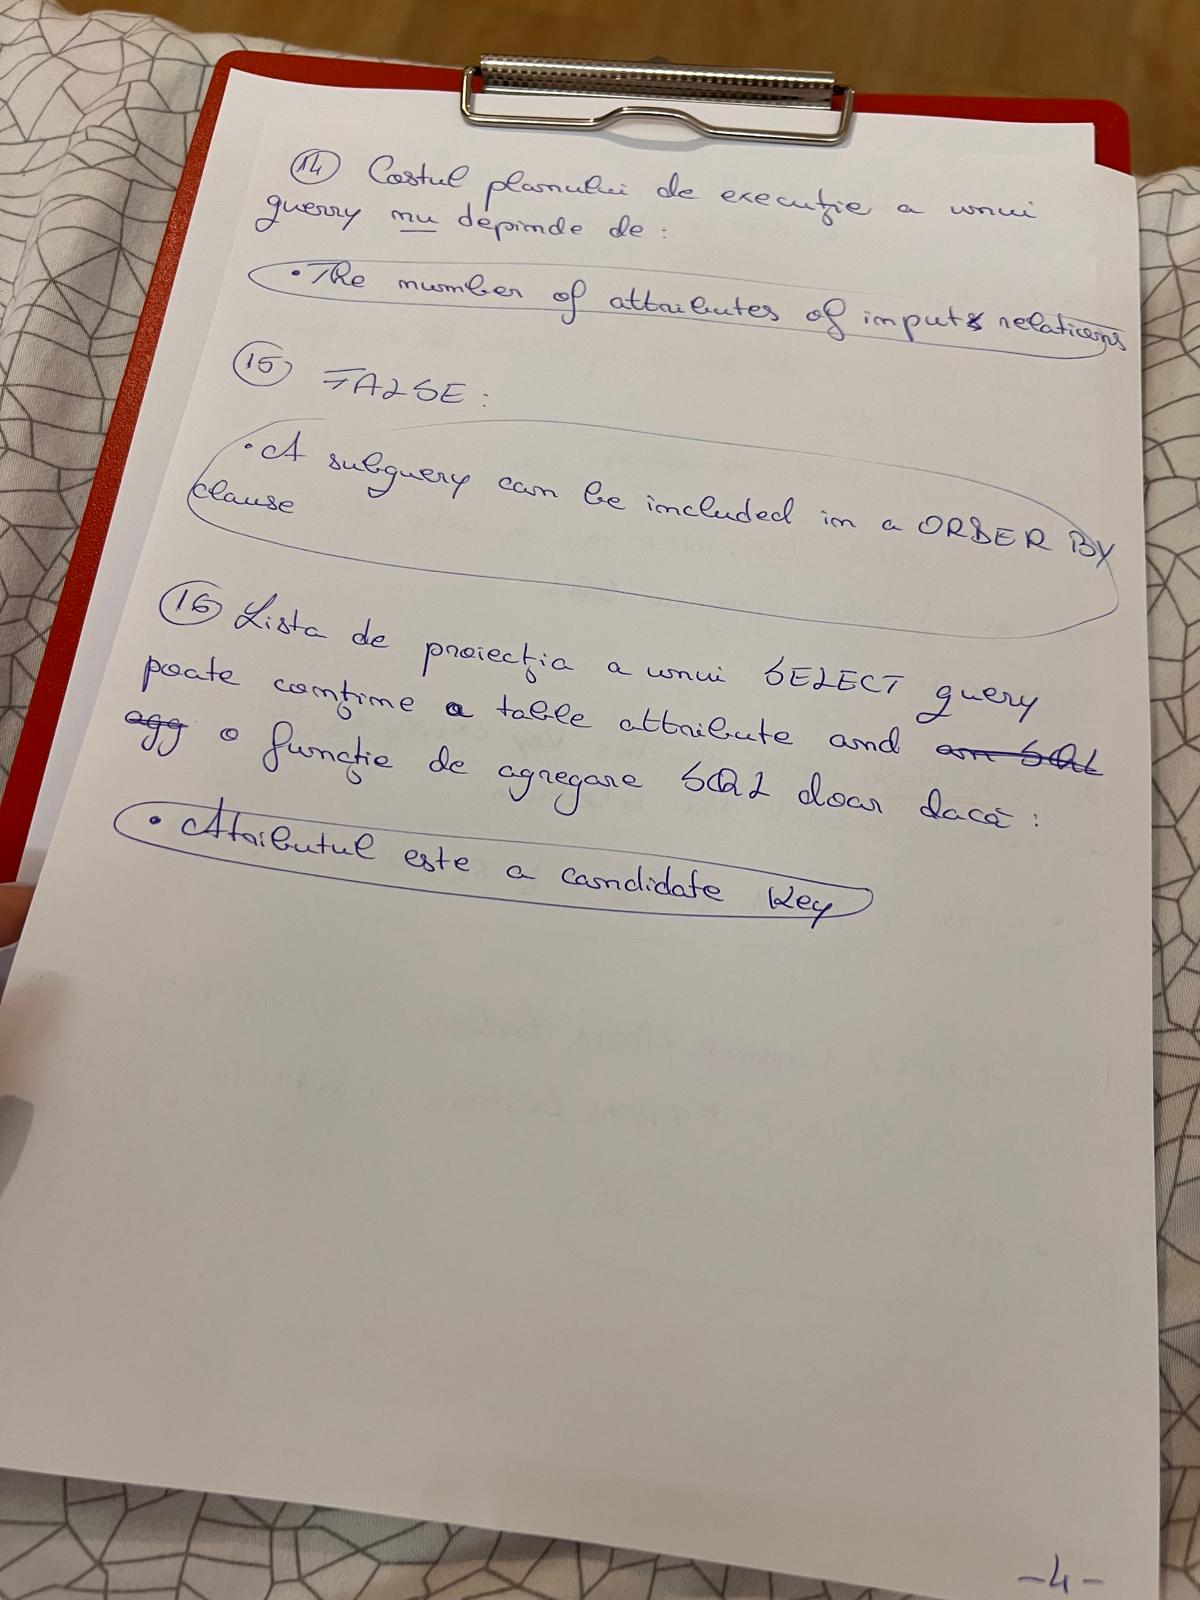 14 Costul planului de execuție a unui
querry nu depinde de:
• The number of attributes of inputs relations
15 FALSE:
• A subquery can be included in a ORDER BY
clause
16 Lista de proiecția a unui SELECT query
poate conține a table attribute and an SQL
agg o funcție de agregare SQL doar dacă:
• Atributul este a candidate key
-4-